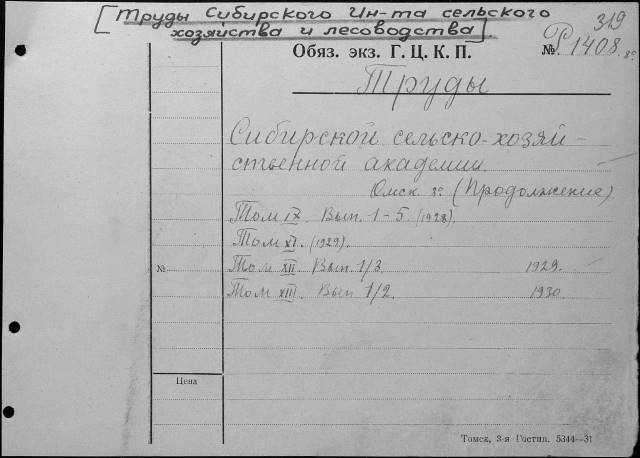 [Труды Сибирского Ин-та сельского
хозяйства и лесоводства].
319
Обяз. экз. Г. Ц. К. П.
№ Р1408. 8°
Труды
Сибирской сельско-хозяй-
ственной академии.
Омск 8° (Продолжение)
Том IX. Вып. 1-5. (1928).
Том XI. (1929).
№
Том XII. Вып. 1/3. 1929.
Том XIII. Вып 1/2. 1930.
Цена
Томск, 3-я Гостип. 5344—31